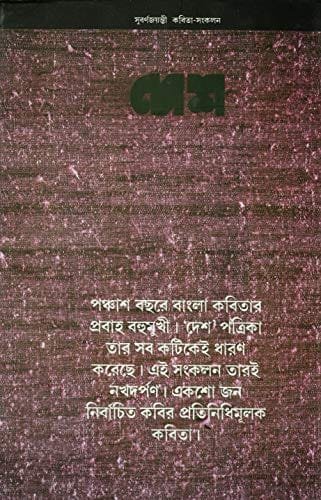 সুবর্ণজয়ন্তী কবিতা-সংকলন
দেশ
পঞ্চাশ বছরে বাংলা কবিতার
প্রবাহ বহুমুখী। 'দেশ' পত্রিকা
তার সব কটিকেই ধারণ
করেছে। এই সংকলন তারই
নখদর্পণ। একশো জন
নির্বাচিত কবির প্রতিনিধিমূলক
কবিতা।